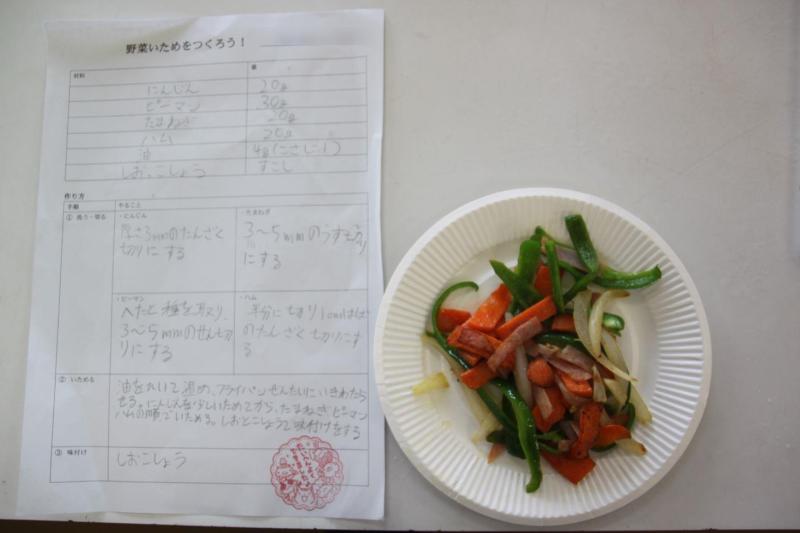 野菜いためをつくろう！
材料 量
にんじん 20g
ピーマン 30g
たまねぎ 20g
ハム 20g
油 4g(こさじ1)
しお、こしょう すこし
作り方
手順 やること
① 洗う・切る
・にんじん
厚さ3mmのたんざく
切りにする
・たまねぎ
3〜5mmのうすぎり
にする
・ピーマン
へたと種を取り、
3〜5mmのせん切
りにする
・ハム
半分にきり1cmはば
のたんざく切りにす
る
② いためる
油を入れて温め、フライパンぜんたいにいきわたら
せる。にんじんを少しいためてから、たまねぎピーマン
ハムの順でいためる。しおとこしょうで味付けをする
③ 味付け
しおこしょう